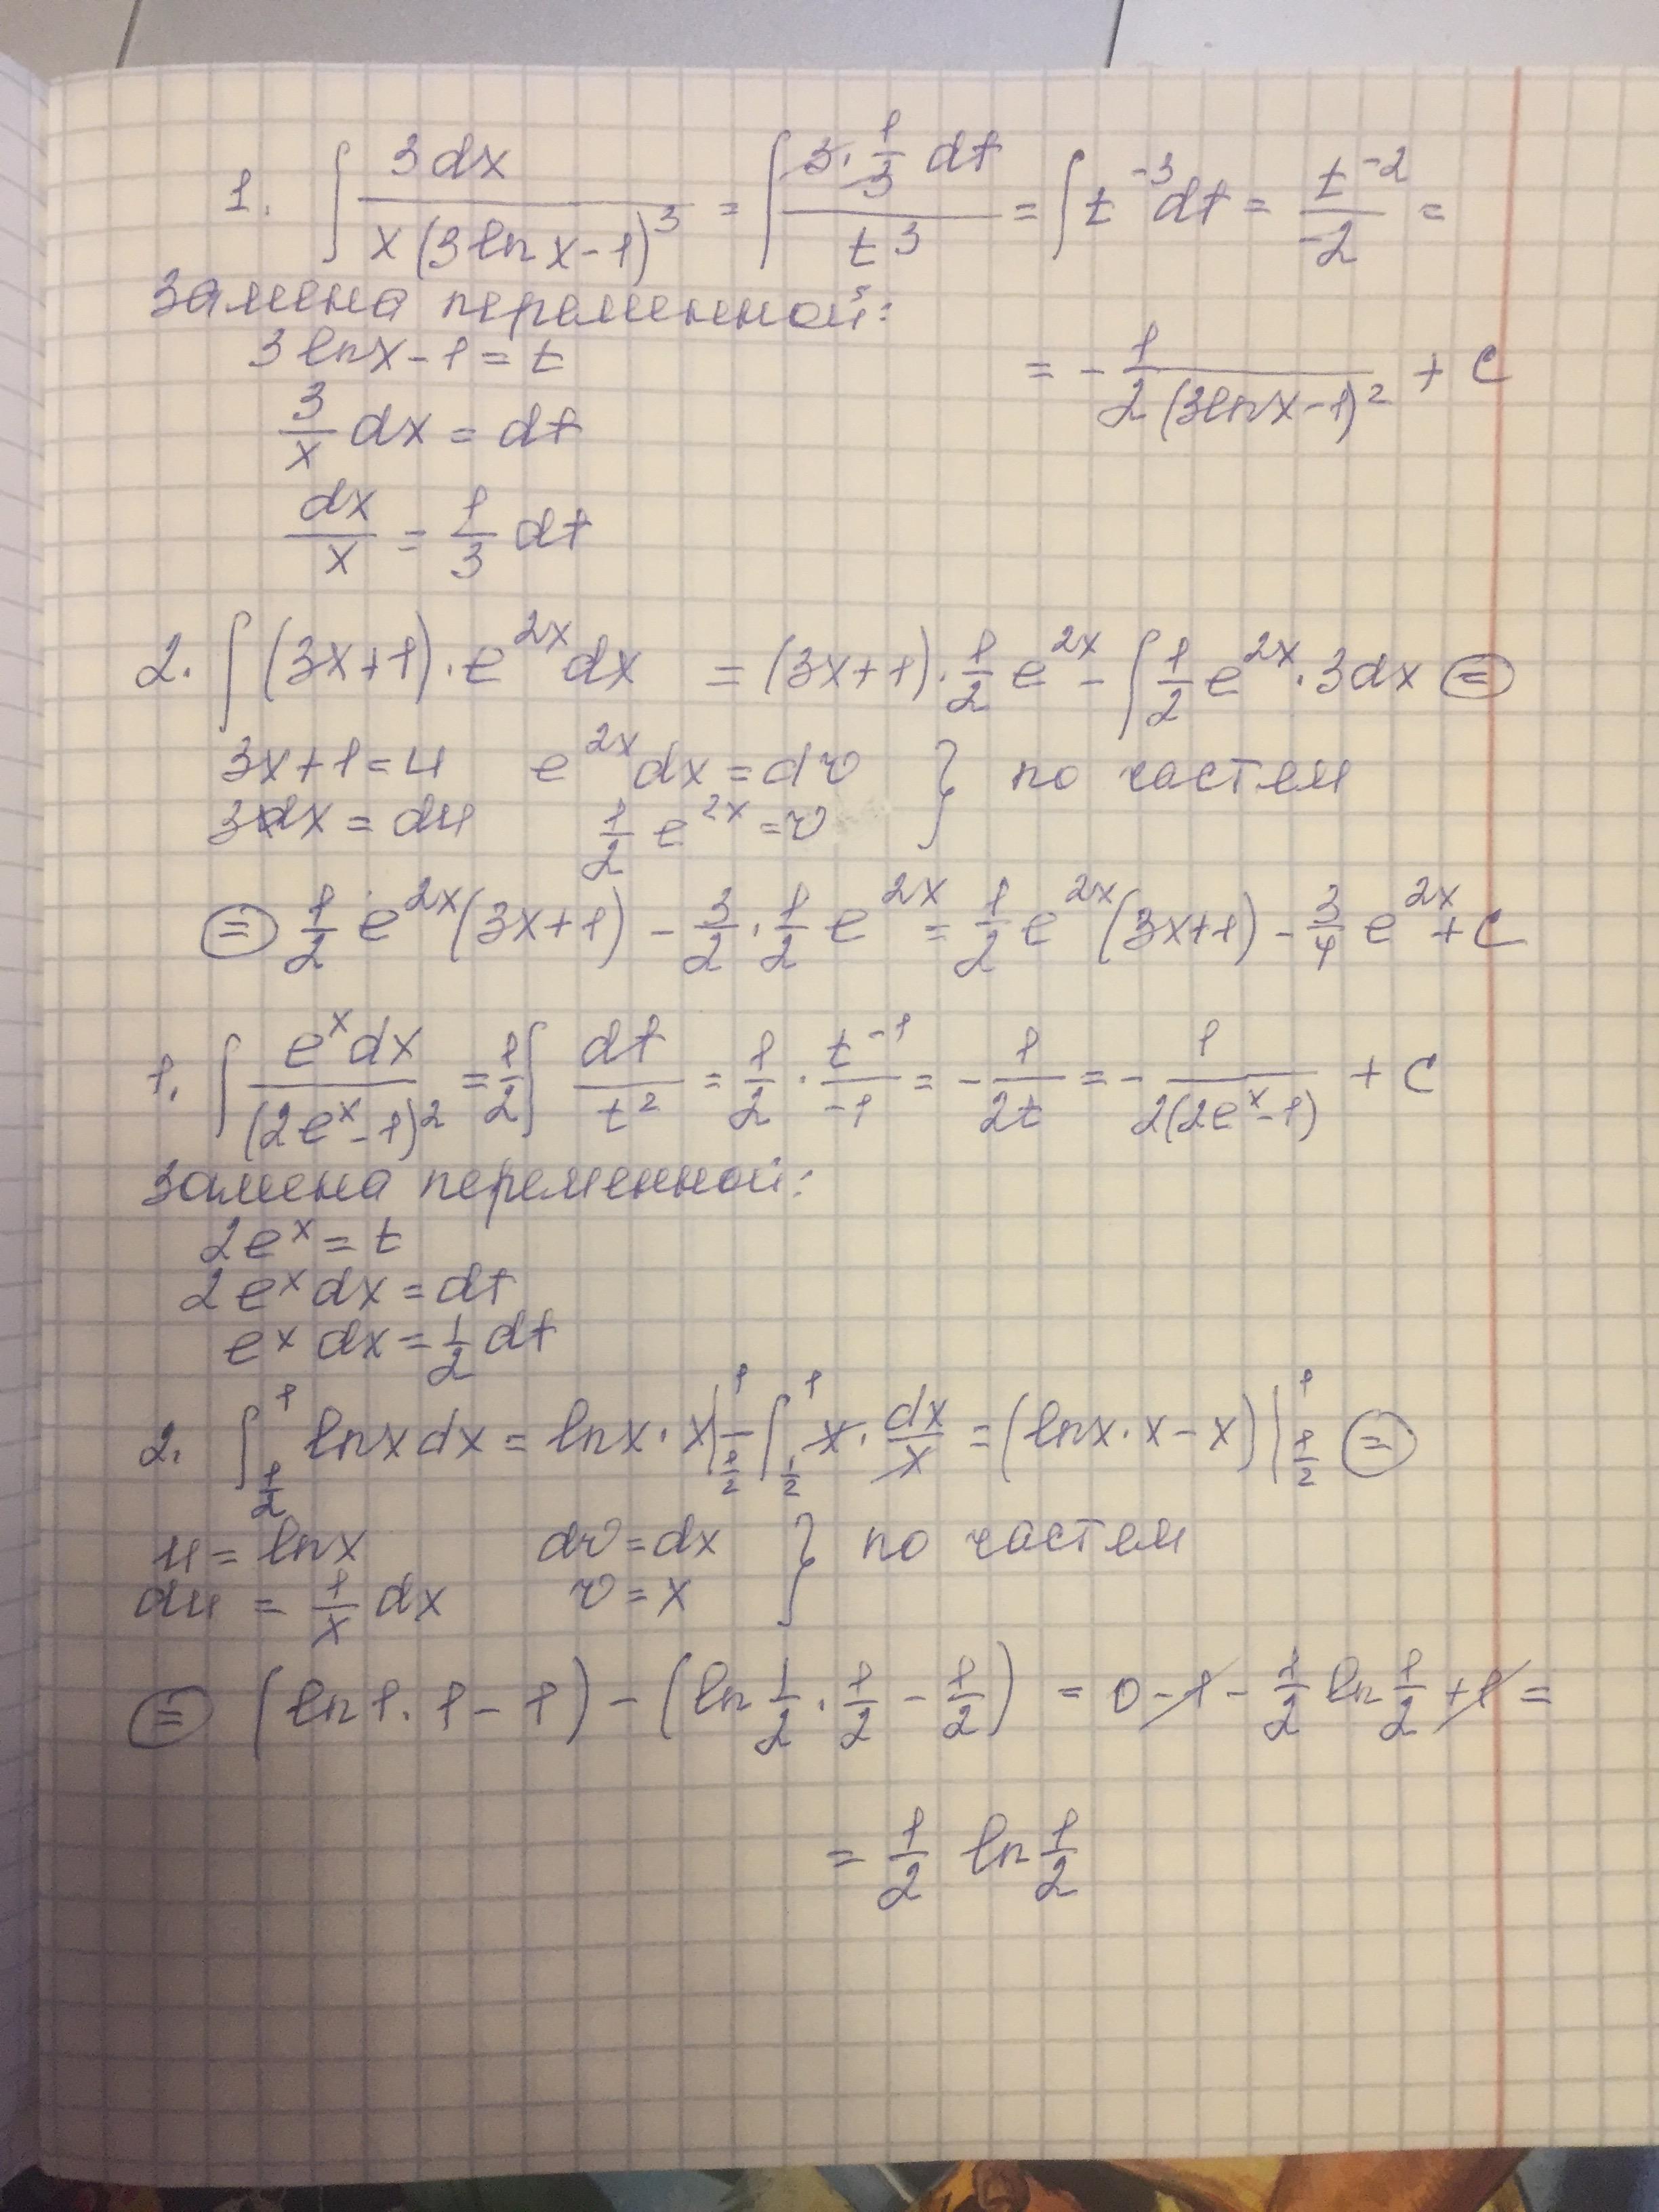 1. ∫ 3dx / x(3lnx-1)³ = ∫ 3·1/3 dt / t³ = ∫ t⁻³dt = t⁻²/-2 =
Замена переменной:
3lnx-1=t
= - 1 / 2(3lnx-1)² + C
3/x dx = dt
dx/x = 1/3 dt
2. ∫ (3x+1)·e^2x dx = (3x+1)·1/2 e^2x - ∫ 1/2 e^2x·3dx =
3x+1=u e^2x dx=dv } по частям
3dx=du 1/2 e^2x=v
= 1/2 e^2x(3x+1) - 3/2·1/2 e^2x = 1/2 e^2x(3x+1) - 3/4 e^2x + C
1. ∫ e^x dx / (2e^x-1)² = 1/2 ∫ dt/t² = 1/2 · t⁻¹/-1 = - 1/2t = - 1 / 2(2e^x-1) + C
Замена переменной:
2e^x=t
2e^x dx=dt
e^x dx=1/2 dt
2. ∫_1/2^1 lnx dx = lnx·x|_1/2^1 - ∫_1/2^1 x·dx/x = (lnx·x-x)|_1/2^1 =
u=lnx dv=dx } по частям
du = 1/x dx v=x
= (ln1·1-1) - (ln 1/2·1/2 - 1/2) = 0-1- 1/2 ln 1/2 +1 =
= 1/2 ln 1/2